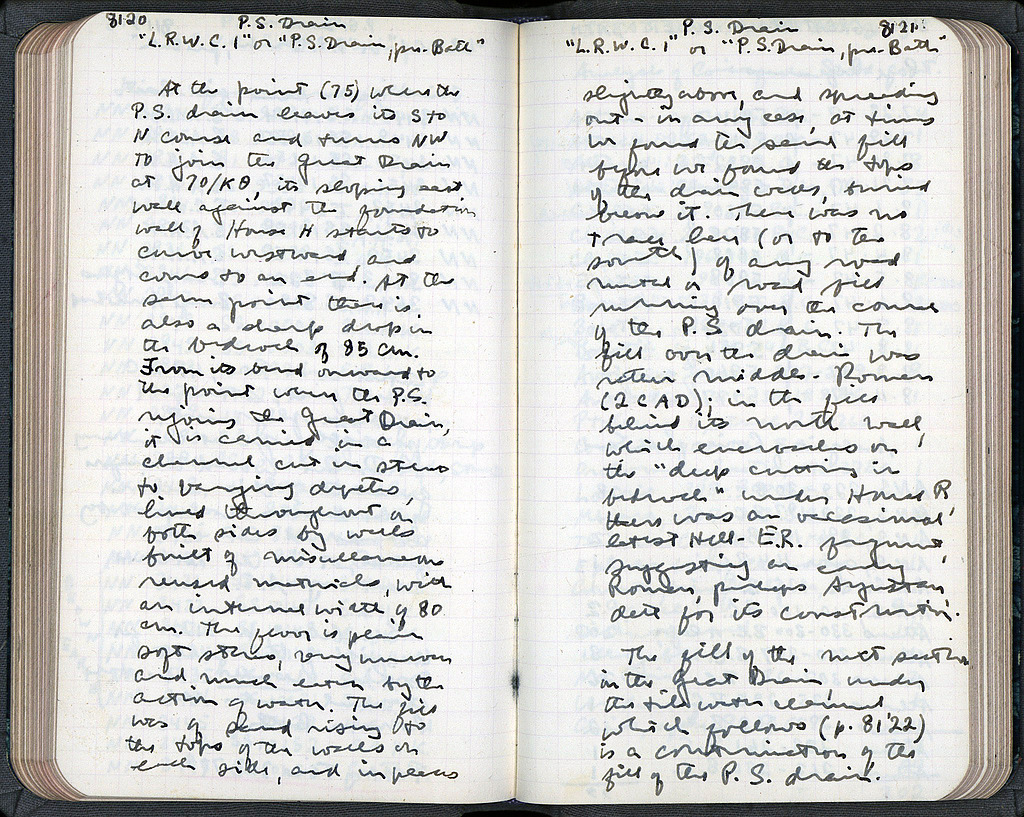 8120
P.S. Drain
"L.R.W.C. 1" or "P.S. Drain, pr. Bath"
At the point (75) where the
P.S. drain leaves its S to
N course and turns NW
to join the Great Drain
at 70/ΚΘ, its sloping east
wall against the foundation
wall of House H starts to
curve westward and
come to an end. At the
same point there is
also a sharp drop in
the bedrock of 85 cm.
From its bend onward to
the point where the P.S.
rejoins the Great Drain,
it is carried in a
channel cut in stereo
to varying depths,
lined throughout on
both sides by walls
built of miscellaneous
reused materials, with
an internal width of 80
cm. The floor is plain
soft stereo, very uneven
and much eaten by the
action of water. The fill
was of sand rising to
the tops of the walls on
each side, and in places
P.S. Drain
8121
"L.R.W.C. 1" or "P.S. Drain, pr. Bath"
slightly above, and spreading
out - in any case, at times
we found the sand fill
before we found the tops
of the drain walls, buried
below it. There was no
trace here (or to the
south) of any road
metal or road fill
running over the course
of the P.S. drain. The
fill over the drain was
rather middle-Roman
(2 C AD); in the fill
behind its north wall,
which encroaches on
the "deep cutting in
bedrock" under House R
there was an occasional
latest Hell-E.R. fragment,
suggesting an early
Roman, perhaps Augustan
date for its construction.
The fill of the next section
in the Great Drain, under
the tile water channel
which follows (p. 8122)
is a continuation of the
fill of the P.S. drain.